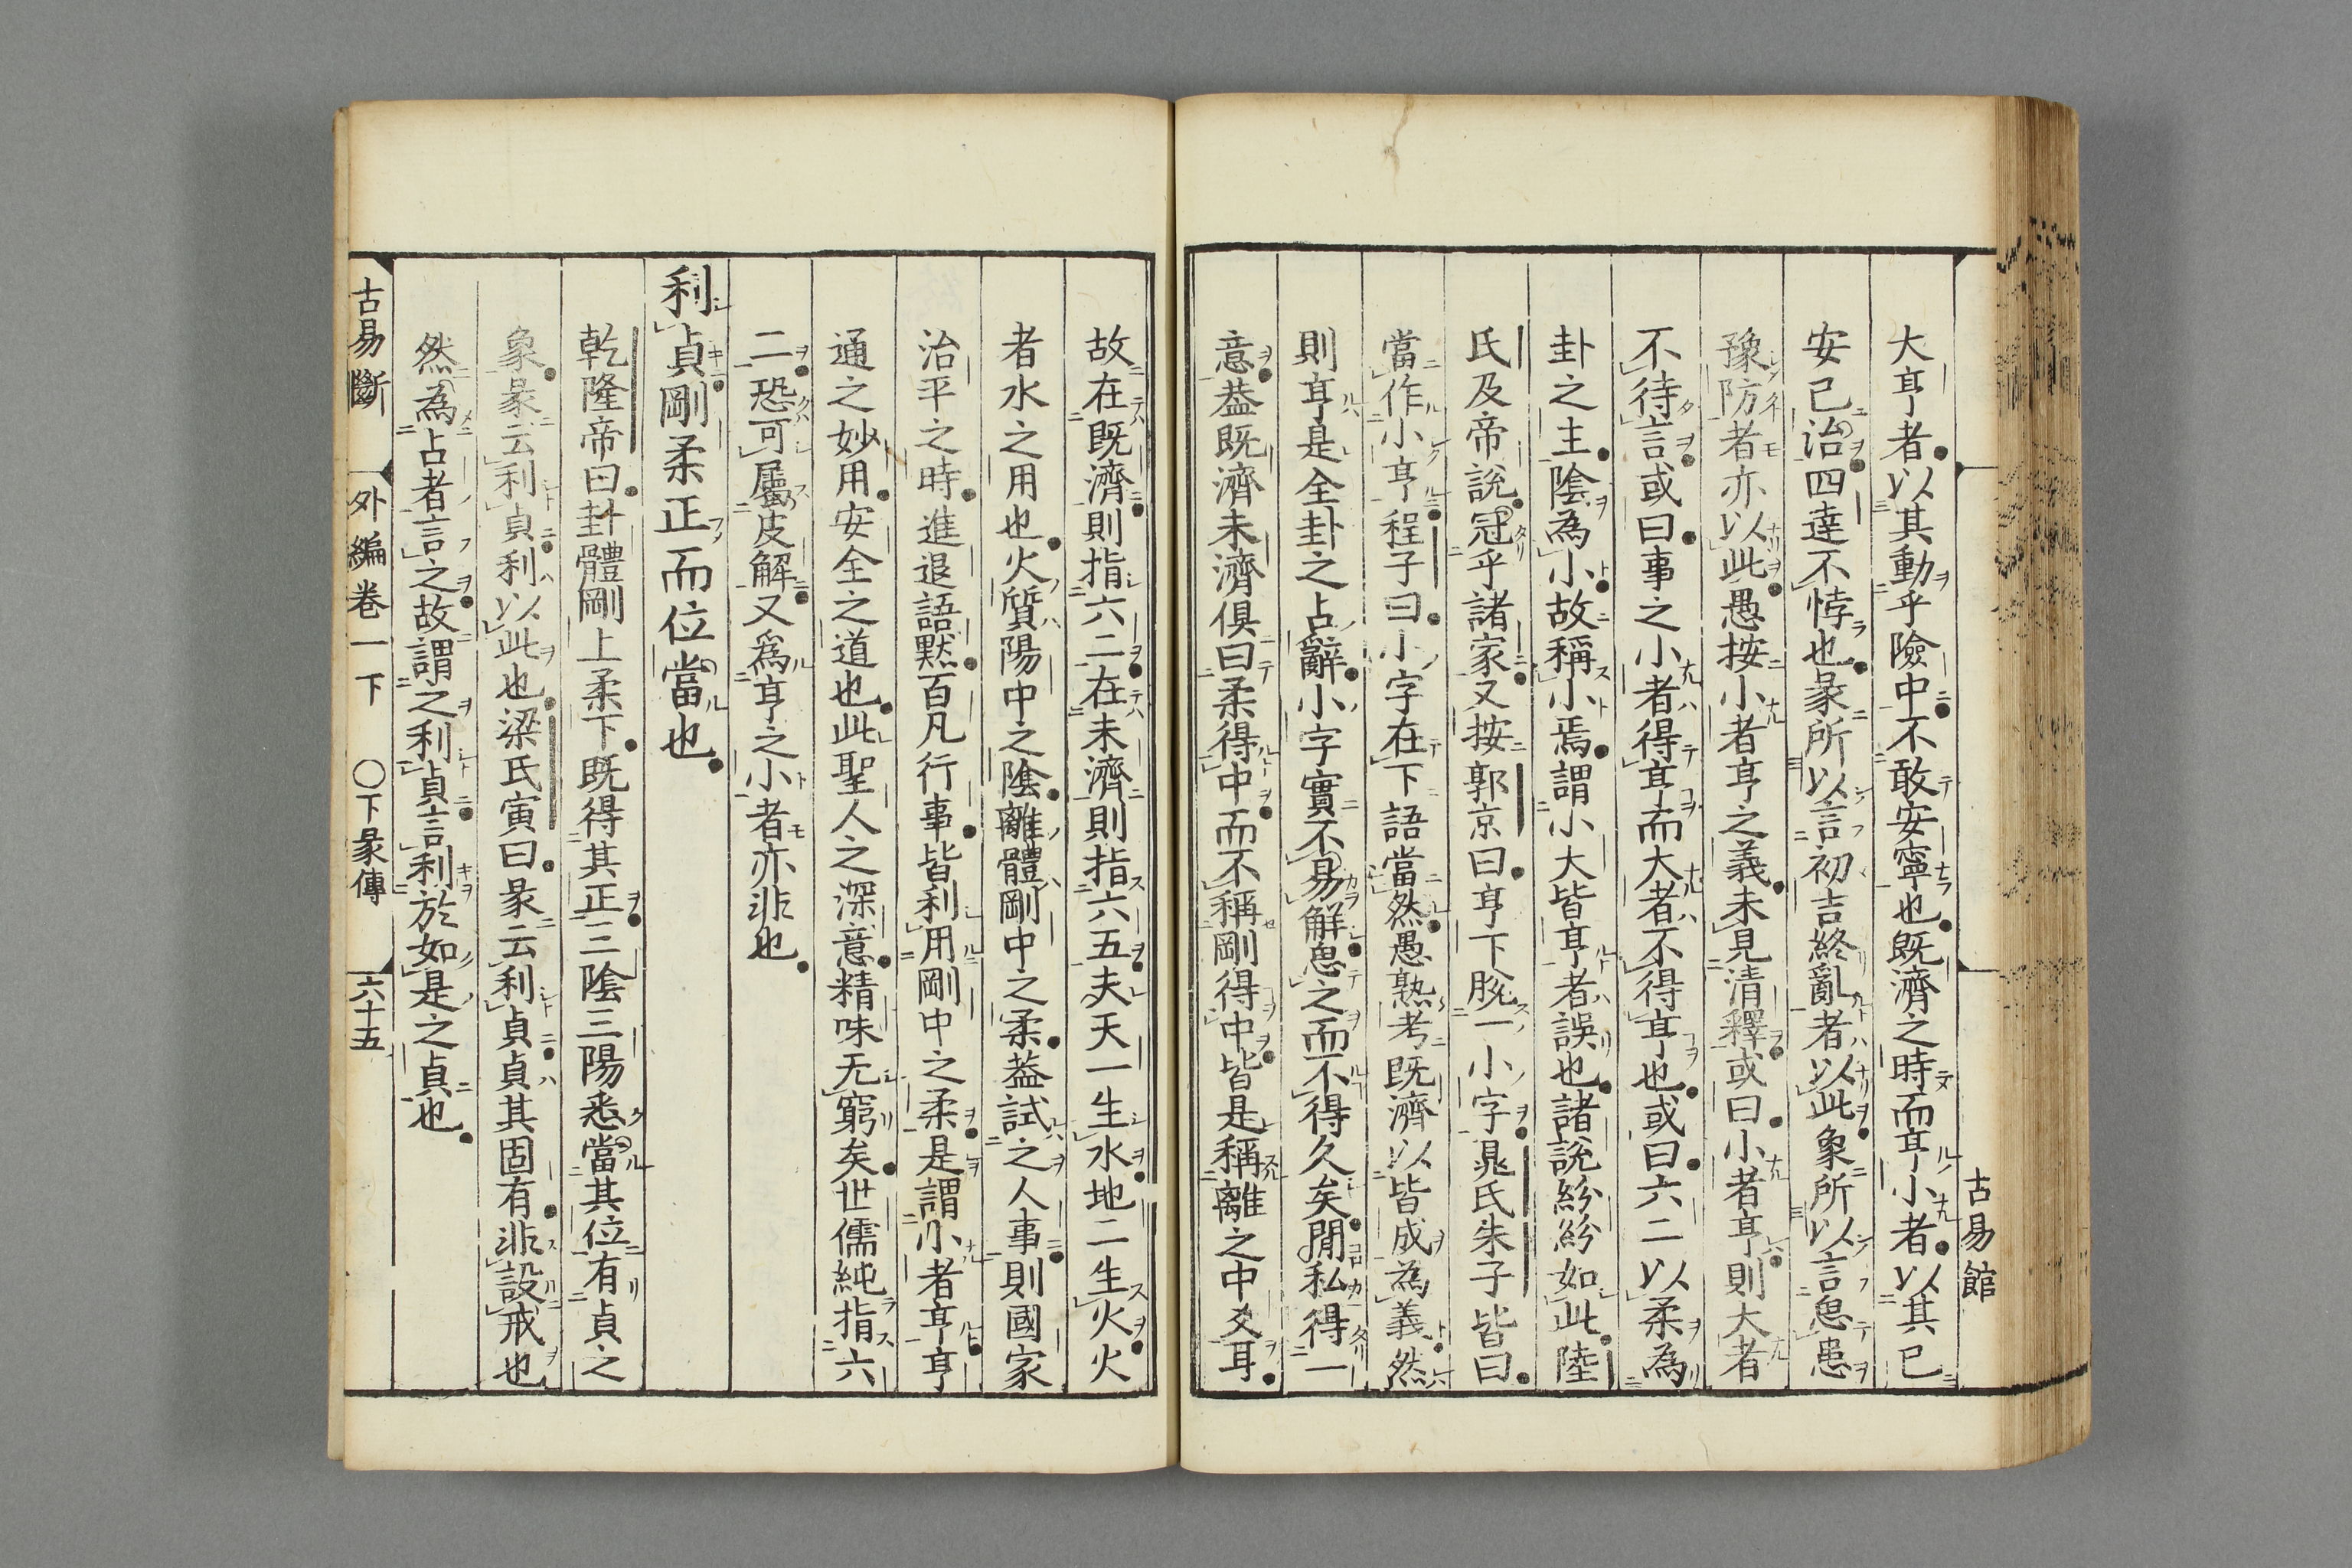 大亨者以其動乎險中不敢安寧也既濟之時而亨小者以其已
安已治四逹不悖也彖所以言初吉終亂者以此象所以言思患
豫防者亦以此愚按小者亨之義未見清釋或曰小者亨則大者
不待言或曰事之小者得亨而大者不得亨也或曰六二以柔為
卦之主陰為小故稱小焉謂小大皆亨者誤也諸說紛紛如此陸
氏及帝說冠乎諸家又按郭京曰亨下脫一小字晁氏朱子皆曰
當作小亨程子曰小字在下語當然愚熟考既濟以皆成為義然
則亨是全卦之占辭小字實不易解思之而不得久矣閒私得一
意葢既濟未濟俱曰柔得中而不稱剛得中皆是稱離之中爻耳
古易館
故在既濟則指六二在未濟則指六五夫天一生水地二生火火
者水之用也火質陽中之陰離體剛中之柔葢試之人事則國家
治平之時進退語默百凡行事皆利用剛中之柔是謂小者亨亨
通之妙用安全之道也此聖人之深意精味无窮矣世儒純指六
二恐可屬皮解又爲亨之小者亦非也
利貞剛柔正而位當也
乾隆帝曰卦體剛上柔下既得其正三陰三陽悉當其位有貞之
象彖云利貞利以此也梁氏寅曰彖云利貞貞其固有非設戒也
然為占者言之故謂之利貞言利於如是之貞也
古易斷　外編卷一下　○下彖傳　六十五